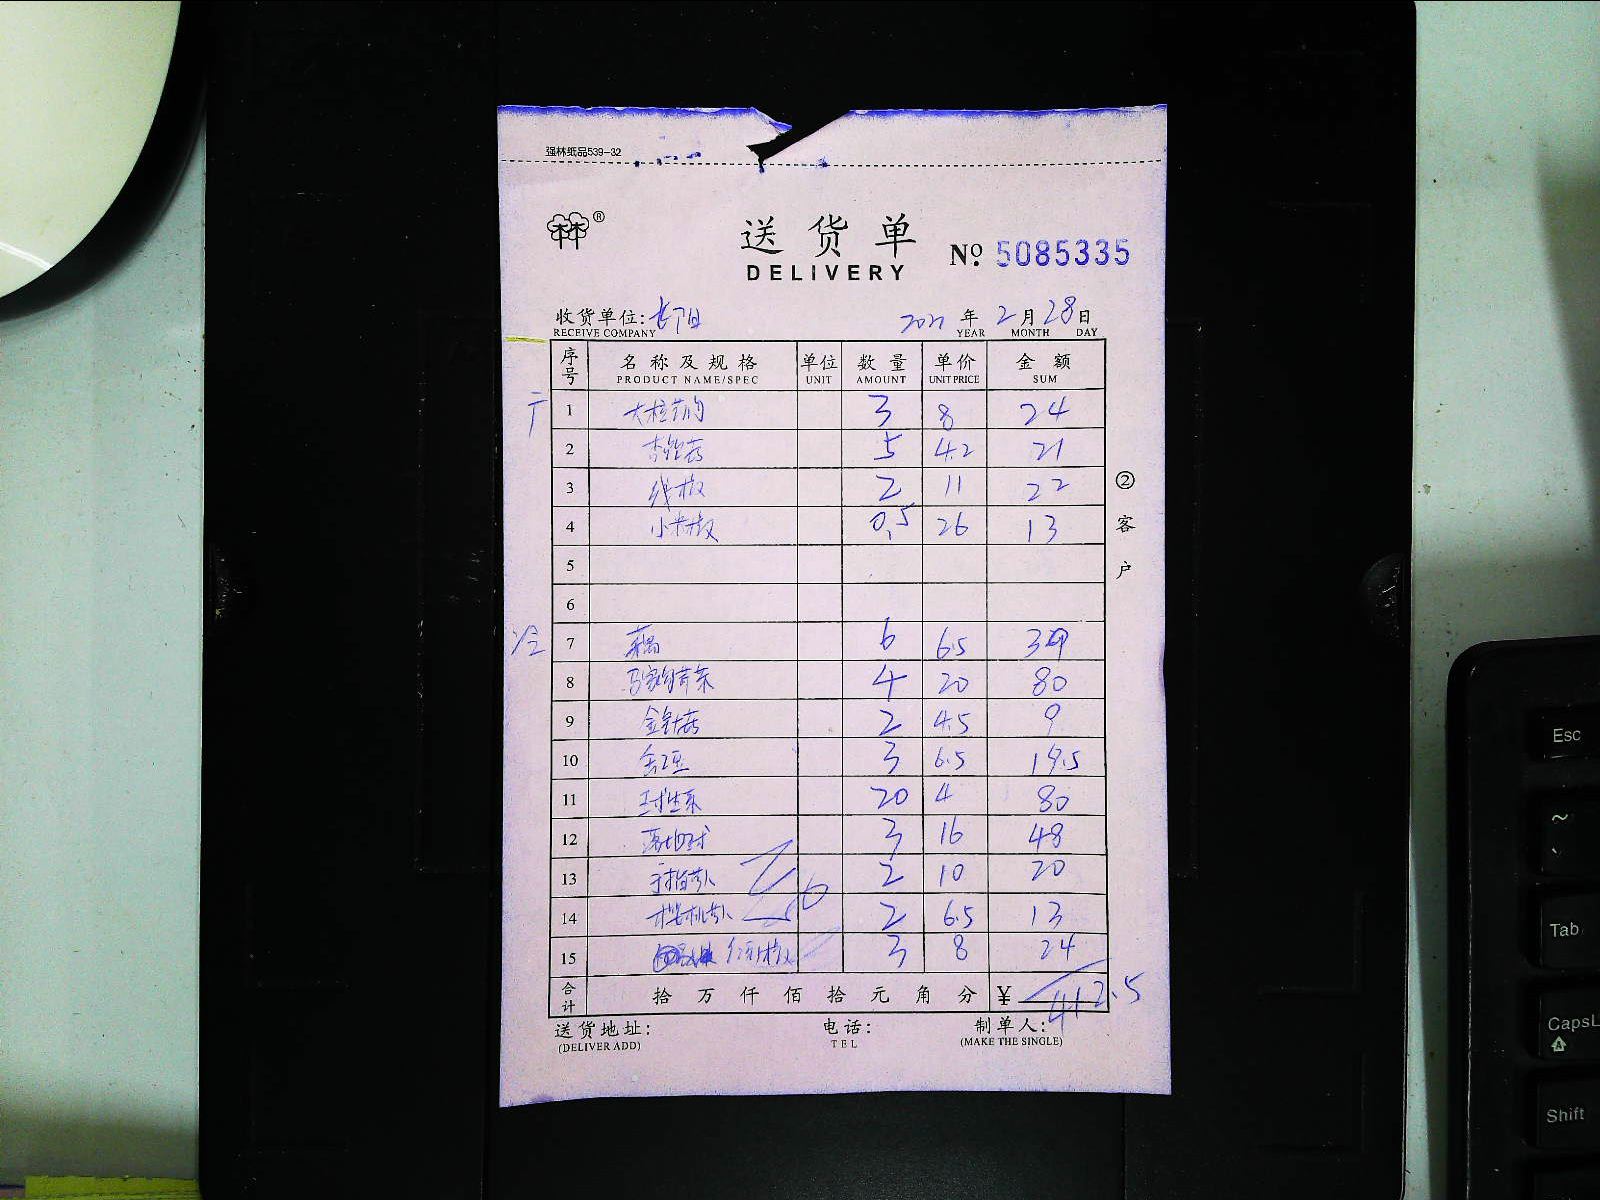 强林纸品539-32
®
送货单
DELIVERY
No. 5085335
收货单位: 长阳 2021年2月28日
RECEIVE COMPANY YEAR MONTH DAY
序号 名称及规格 单位 数量 单价 金额
PRODUCT NAME/SPEC UNIT AMOUNT UNIT PRICE SUM
1 3 8 24
2 杏鲍菇 5 4.2 21
3 线椒 2 11 22
4 小米椒 0.5 26 13
5
6
冷 7 藕 6 6.5 39
8 马家沟芹菜 4 20 80
9 金针菇 2 4.5 9
10 3 6.5 19.5
11 球生菜 20 4 80
12 3 16 48
13 手指萝卜 2 10 20
14 樱桃萝卜 2 6.5 13
15 3 8 24
合计 拾万仟佰拾元角分 ¥ 412.5
②客户
送货地址: 电话: 制单人:
(DELIVER ADD) TEL (MAKE THE SINGLE)
Esc
~
Tab
CapsL
A
Shift